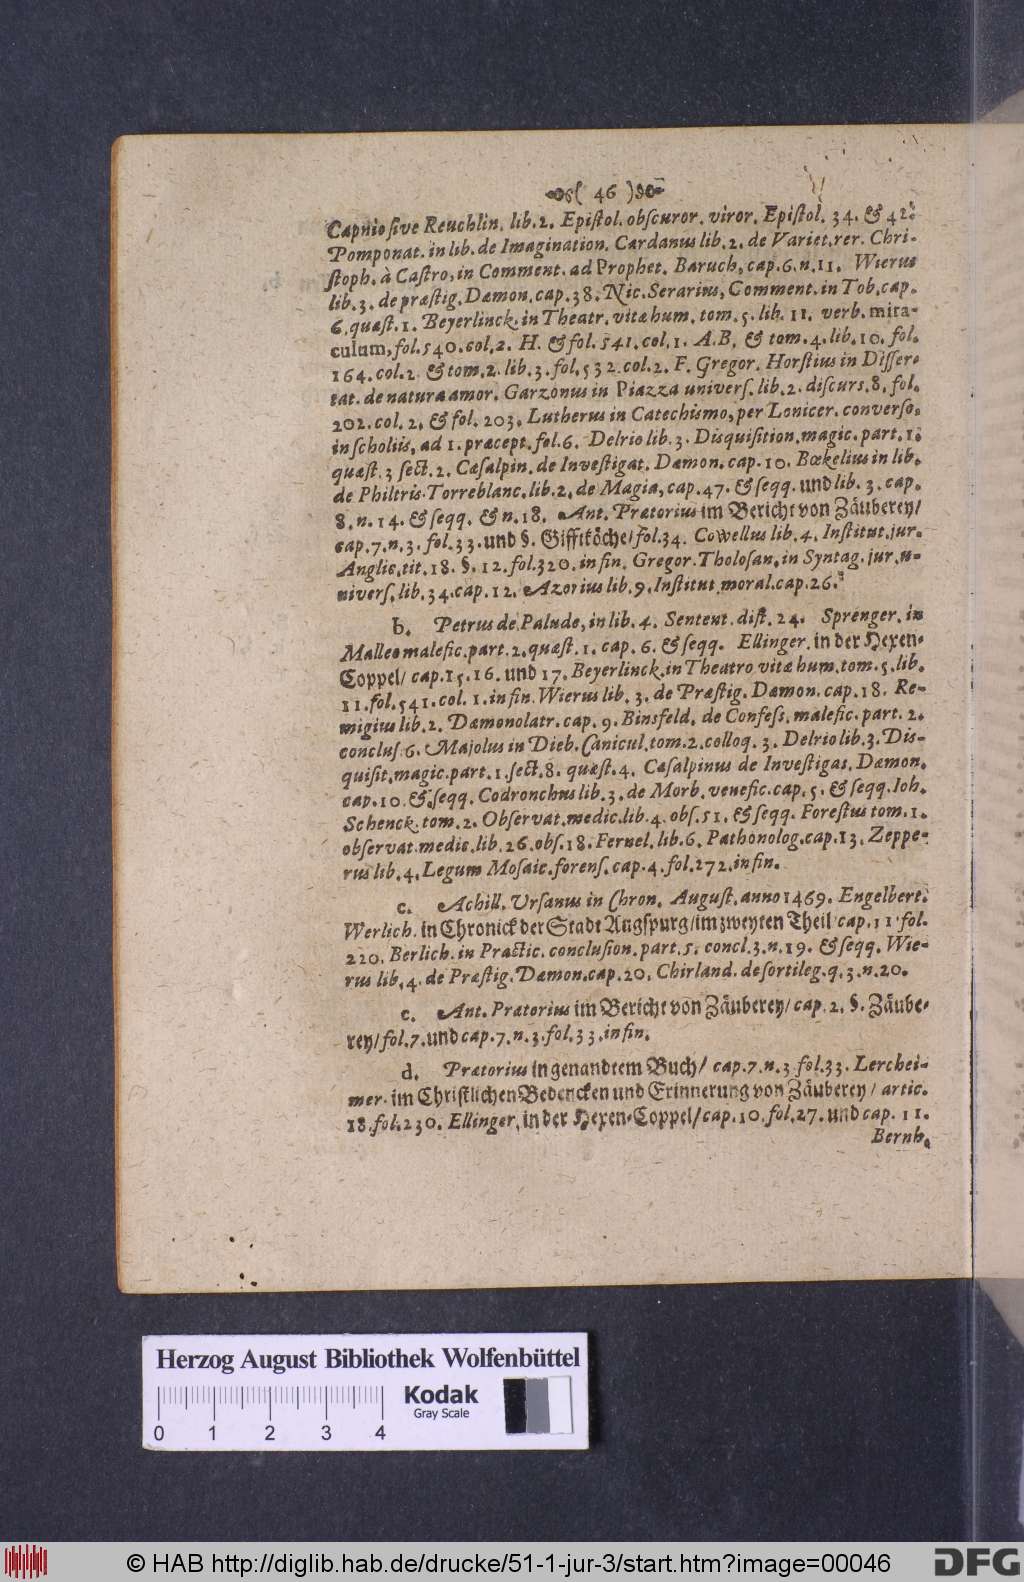 ( 46 )
Capnio ſive Reuchlin. lib. 2. Epiſtol. obſcuror. viror. Epiſtol. 34. & 42.
Pomponat. in lib. de Imagination. Cardanus lib. 2. de Variet. rer. Chri-
ſtoph. à Caſtro, in Comment. ad Prophet. Baruch, cap. 6. n. 11. Wierus
lib. 3. de præſtig. Dæmon. cap. 38. Nic. Serarius, Comment. in Tob. cap.
6. quæſt. 1. Beyerlinck. in Theatr. vitæ hum. tom. 5. lib. 11. verb. mira-
culum, fol. 540. col. 2. H. & fol. 541. col. 1. A. B. & tom. 4. lib. 10. fol.
164. col. 2. & tom. 2. lib. 3. fol. 532. col. 2. F. Gregor. Horſtius in Diſſer-
tat. de natura amor. Garzonus in Piazza univerſ. lib. 2. diſcurs. 8. fol.
202. col. 2. & fol. 203. Lutherus in Catechismo, per Lonicer. converſo.
in ſcholiis, ad 1. præcept. fol. 6. Delrio lib. 3. Disquiſition. magic. part. 1.
quæſt. 3 ſect. 2. Cæſalpin. de Inveſtigat. Dæmon. cap. 10. Bœkelius in lib.
de Philtris. Torreblanc. lib. 2. de Magia, cap. 47. & ſeqq. und lib. 3. cap.
8. n. 14. & ſeqq. & n. 18. Ant. Prætorius im Bericht von Zäuberey/
cap. 7. n. 3. fol. 33. und §. Gifftköche/ fol. 34. Cowellus lib. 4. Inſtitut. jur.
Anglic. tit. 18. §. 12. fol. 320. in fin. Gregor. Tholoſan. in Syntag. jur. u-
niverſ. lib. 34. cap. 12. Azorius lib. 9. Inſtitut. moral. cap. 26.
b. Petrus de Palude, in lib. 4. Sentent. diſt. 24. Sprenger. in
Malleo malefic. part. 2. quæſt. 1. cap. 6. & ſeqq. Ellinger. in der Hexen-
Coppel/ cap. 15. 16. und 17. Beyerlinck. in Theatro vitæ hum. tom. 5. lib.
11. fol. 541. col. 1. in fin. Wierus lib. 3. de Præſtig. Dæmon. cap. 18. Re-
migius lib. 2. Dæmonolatr. cap. 9. Binsfeld. de Confeſs. malefic. part. 2.
concluſ. 6. Majolus in Dieb. Canicul. tom. 2. colloq. 3. Delrio lib. 3. Dis-
quiſit. magic. part. 1. ſect. 8. quæſt. 4. Cæſalpinus de Inveſtigat. Dæmon.
cap. 10. & ſeqq. Codronchus lib. 3. de Morb. venefic. cap. 5. & ſeqq. Ioh.
Schenck. tom. 2. Obſervat. medic. lib. 4. obſ. 51. & ſeqq. Foreſtus tom. 1.
obſervat. medic. lib. 26. obſ. 18. Fernel. lib. 6. Pathonolog. cap. 13. Zeppe-
rus lib. 4. Legum Moſaic. forenſ. cap. 4. fol. 272. in fin.
c. Achill. Urſanus in Chron. Auguſt. anno 1469. Engelbert.
Werlich. in Chronick der Stadt Augſpurg/ im zweyten Theil cap. 11. fol.
220. Berlich. in Practic. concluſion. part. 5. concl. 3. n. 19. & ſeqq. Wie-
rus lib. 4. de Præſtig. Dæmon. cap. 20. Chirland. de ſortileg. q. 3. n. 20.
c. Ant. Prætorius im Bericht von Zäuberey/ cap. 2. §. Zäube-
rey/ fol. 7. und cap. 7. n. 3. fol. 33. in fin.
d. Prætorius in genandtem Buch/ cap. 7. n. 3. fol. 33. Lerchei-
mer. im Chriſtlichen Bedencken und Erinnerung von Zäuberey/ artic.
18. fol. 230. Ellinger. in der Hexen-Coppel/ cap. 10. fol. 27. und cap. 11.
Bernh.
Herzog August Bibliothek Wolfenbüttel
Kodak
Gray Scale
0 1 2 3 4
© HAB http://diglib.hab.de/drucke/51-1-jur-3/start.htm?image=00046
DFG